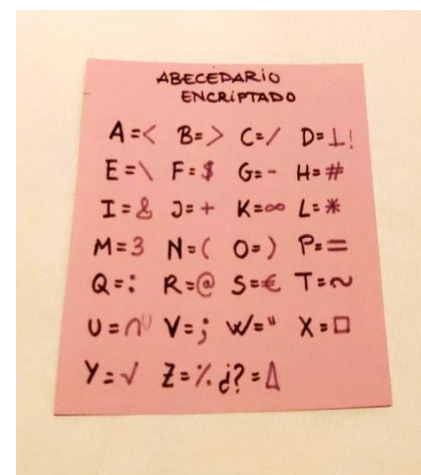 ABECEDARIO
ENCRIPTADO
A=< B=> C=/ D=⊥!
E=\ F=$ G=- H=#
I=& J=+ K=∞ L=*
M=3 N=( O=) P==
Q=: R=@ S=€ T=~
U=∩ V=; W=" X=□
Y=√ Z=% ¿?=Δ